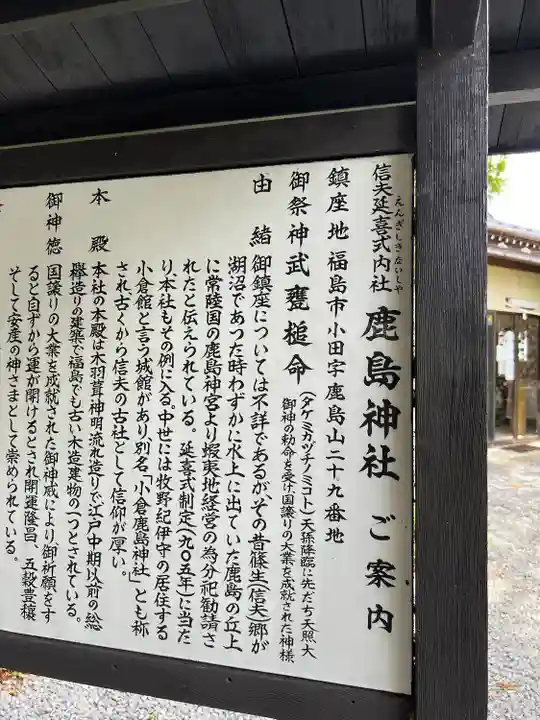 信夫延喜式内社 鹿島神社 ご案内
えんぎしきないしゃ
鎮座地 福島市小田字鹿島山二十九番地
御祭神 武甕槌命
(タケミカヅチノミコト)天孫降臨に先だち天照大
御神の勅命を受け国譲りの大業を成就された神様
由緒 御鎮座については不詳であるが、その昔篠生(信夫)郷が
湖沼であつた時わずかに水上に出ていた鹿島の丘上
に常陸国の鹿島神宮より蝦夷地経営の為分祀勧請さ
れたと伝えられている。延喜式制定(九〇五年)に当た
り、本社もその例に入る。中世には牧野紀伊守の居住する
小倉館と言う城館があり別名「小倉鹿島神社」とも称
され古くから信夫の古社として信仰が厚い。
本殿 本社の本殿は木羽葺神明流れ造りで、江戸中期以前の総
欅造りの建築で福島でも古い木造建物の一つとされている。
御神徳 国譲りの大業を成就された御神威により、御祈願をす
ると自ずから運が開けるとされ開運隆昌、五穀豊穣
そして安産の神さまとして崇められている。